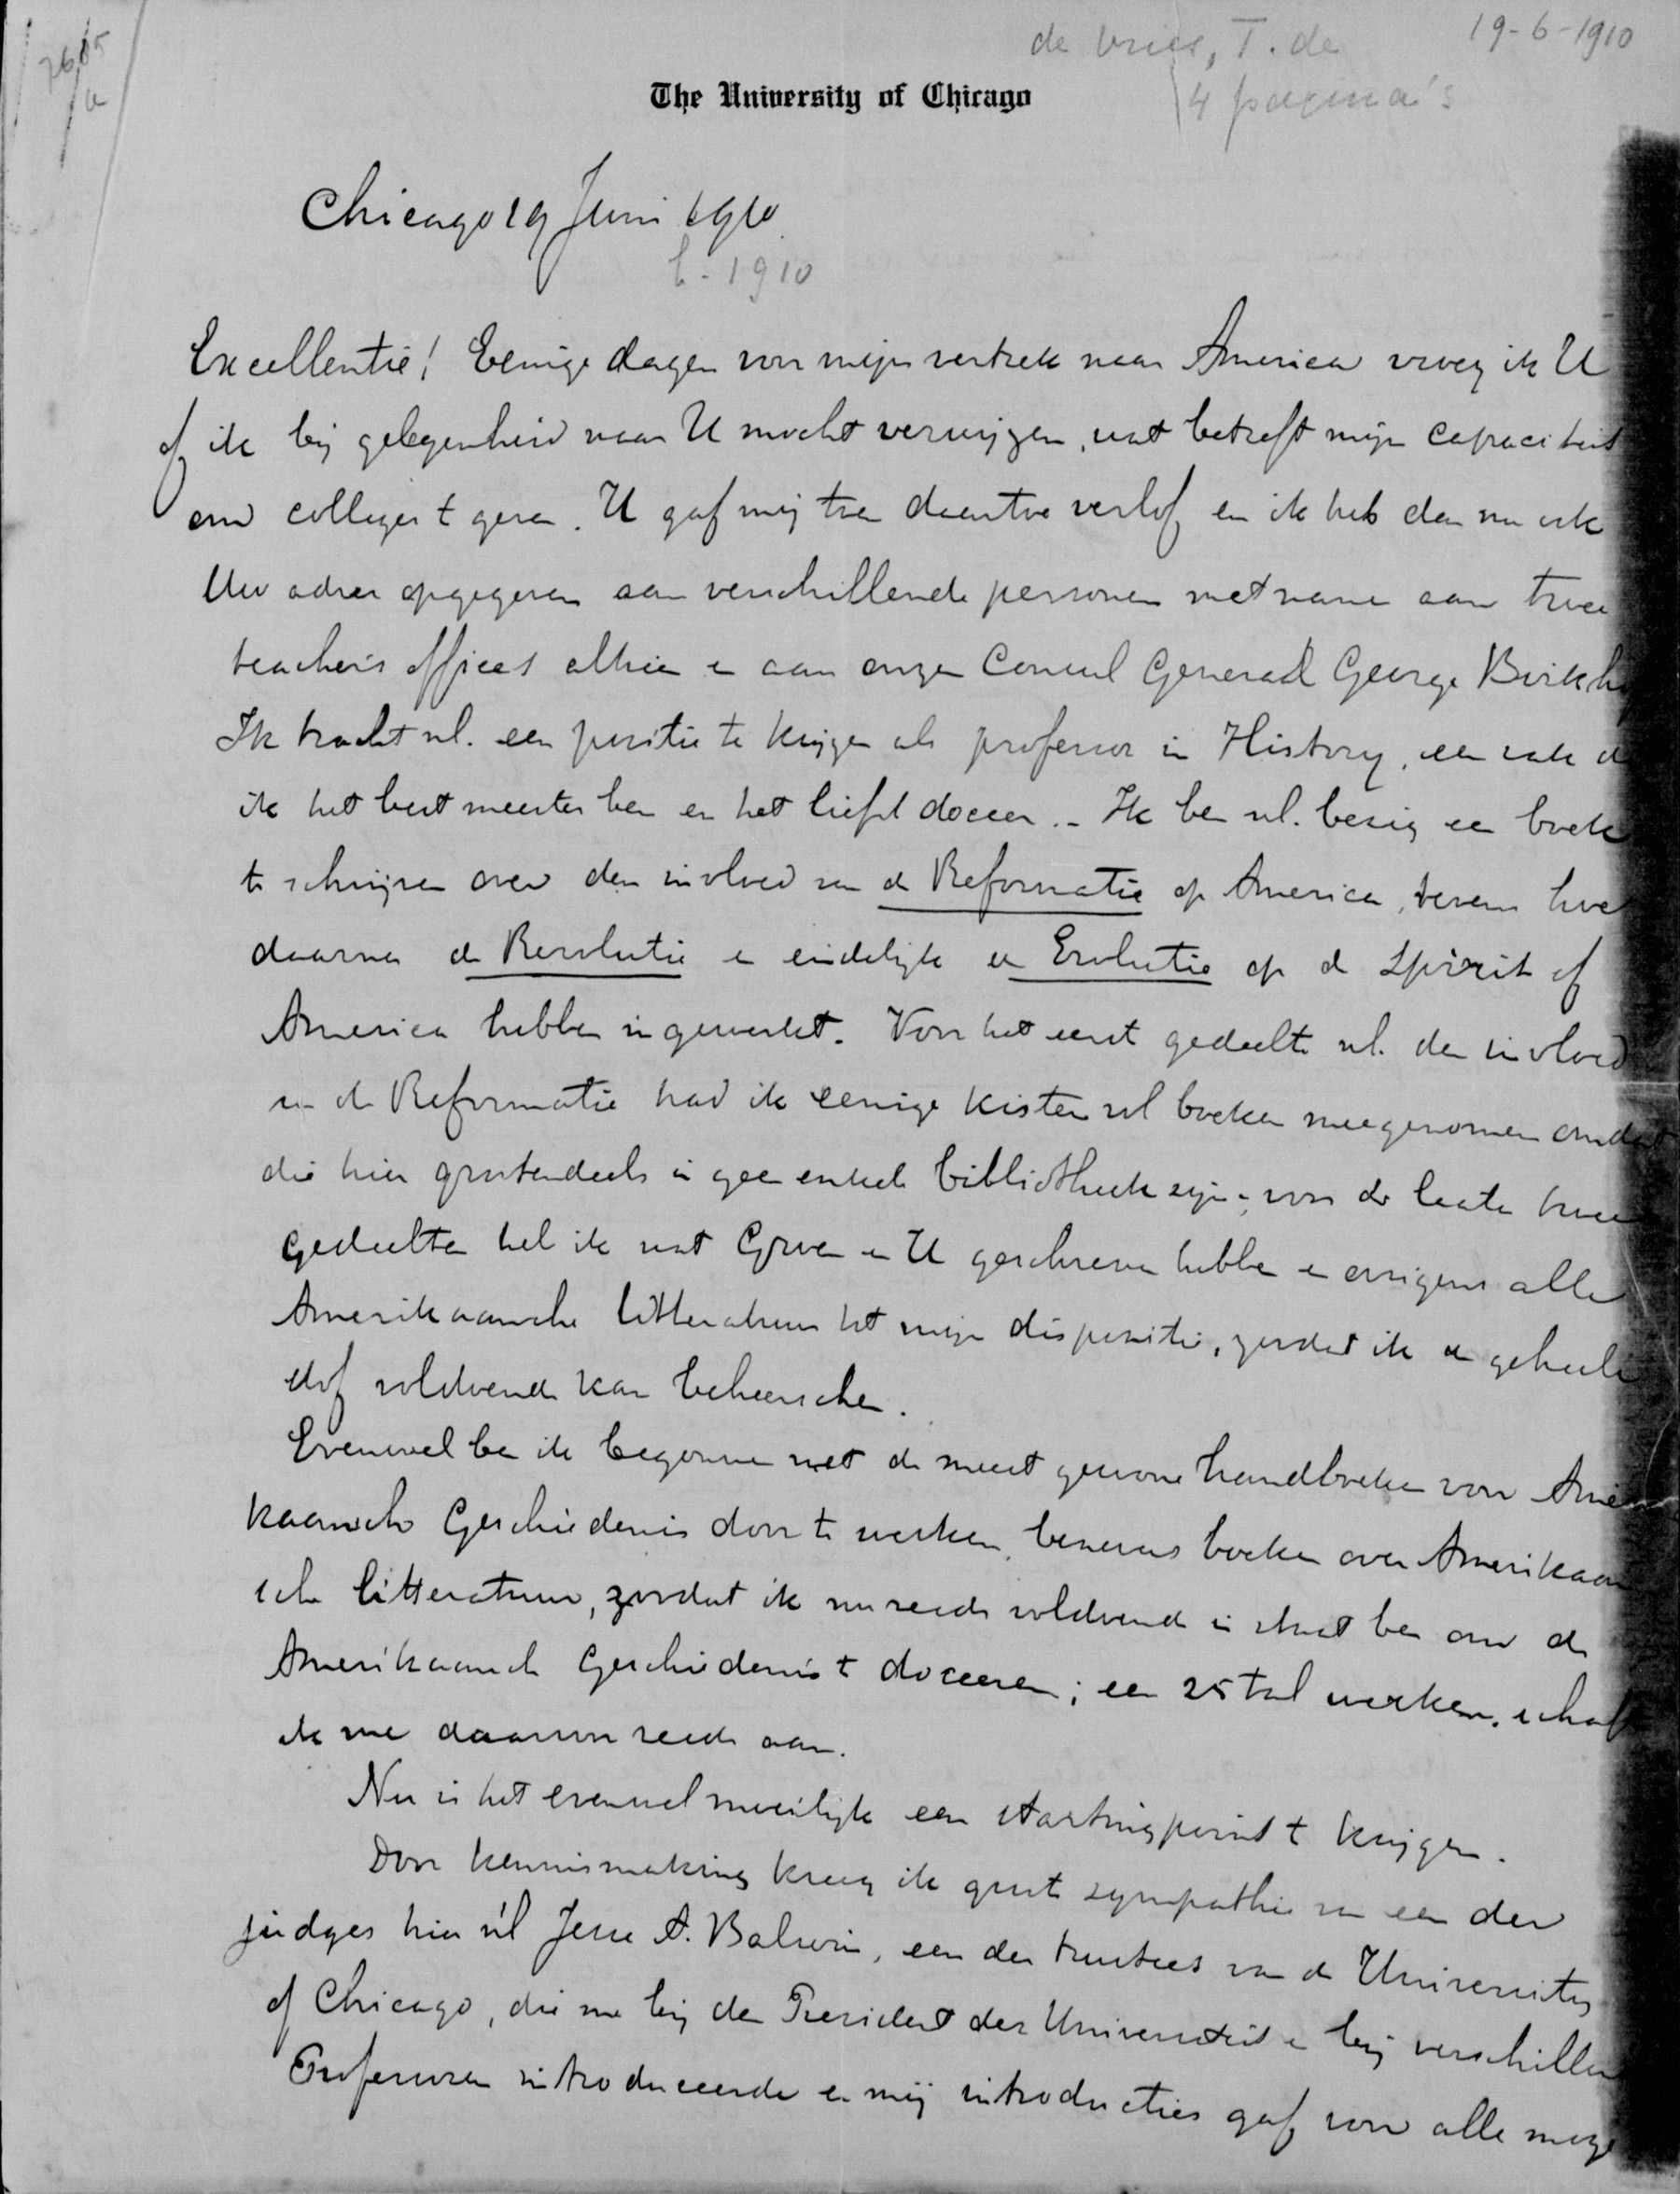 19-6-1910
de Vries, T. de
4 pagina's
The University of Chicago
Chicago 19 Juni 1910
6-1910
Excellentie! Eenige dagen voor mijn vertrek naar America vroeg ik U
of ik bij gelegenheid naar U mocht verwijzen, wat betreft mijn capaciteit
om colleges t geven. U gaf mij toen daartoe verlof en ik heb dan nu ook
Uw adres opgegeven aan verschillende personen met name aan twee
teacher's offices alhier en aan onzen Consul Generaal George Birkh
Ik tracht nl. een positie te krijgen als professor in History, een vak d
ik het best meester ben en het liefst doceer. - Ik ben nl. bezig een boek
te schrijven over den invloed van de Reformatie op America, tevens hoe
daarna de Revolutie en eindelijk de Evolutie op de Spirit of
America hebben ingewerkt. Voor het eerst gedeelte nl. den invloed
van de Reformatie had ik eenige kisten vol boeken meegenomen omdat
die hier grootendeels in geen enkele bibliotheek zijn; voor de laatste twee
gedeelten heb ik wat Groen en U geschreven hebben en overigens alle
Amerikaansche litteratuur tot mijn dispositie, zoodat ik de geheele
stof voldoende kan beheerschen.
Evenwel ben ik begonnen met de meest gewone handboeken voor Ameri
kaansche Geschiedenis door te werken, benevens boeken over Amerikaan
sche litteratuur, zoodat ik nu reeds voldoende in staat ben om de
Amerikaansch Geschiedenis t doceeren; een 25 tal werken, schaft
ik me daarvoor reeds aan.
Nu is het evenwel moeilijk een startingpoint t krijgen.
Door kennismaking kreeg ik groote sympathie van een der
judges hier nl Jesse A. Balwin, een der trustees van de University
of Chicago, die me bij den President der Universiteit en bij verschillen
Professoren introduceerde en mij introducties gaf voor alle moge